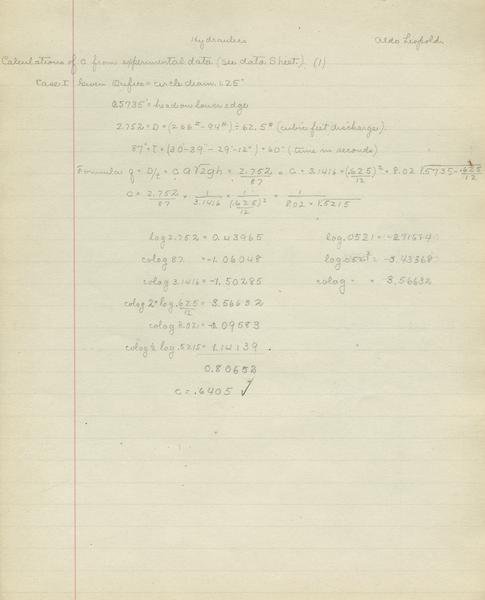 Hydraulics Aldo Leopold
Calculations of c from experimental data (see data Sheet.) (1)
Case I Given Orifice = circle diam. 1.25"
0.5735' = head on lower edge
2.752 = D = (266# - 94#) ÷ 62.5# (cubic feet discharge)
87" = t = (30'-39" - 29'-12") × 60" (time in seconds)
Formula: q = D/t = c a √2gh = 2.752/87 = c × 3.1416 × (.625/12)² × 8.02 √.5735 - .625/12
c = 2.752/87 × 1/3.1416 × 1/(.625/12)² × 1/8.02 × √.5215
log 2.752 = 0.43965 log .0521 =
colog 87. = -1.06048 log = -3.43368
colog 3.1416 = -1.50285 colog " = 3.56632
colog 2 × log .625/12 = 3.56632
colog 8.021 = -1.09583
colog ½ log .5215 = 1.14139
0.80652
c = .6405 ✓